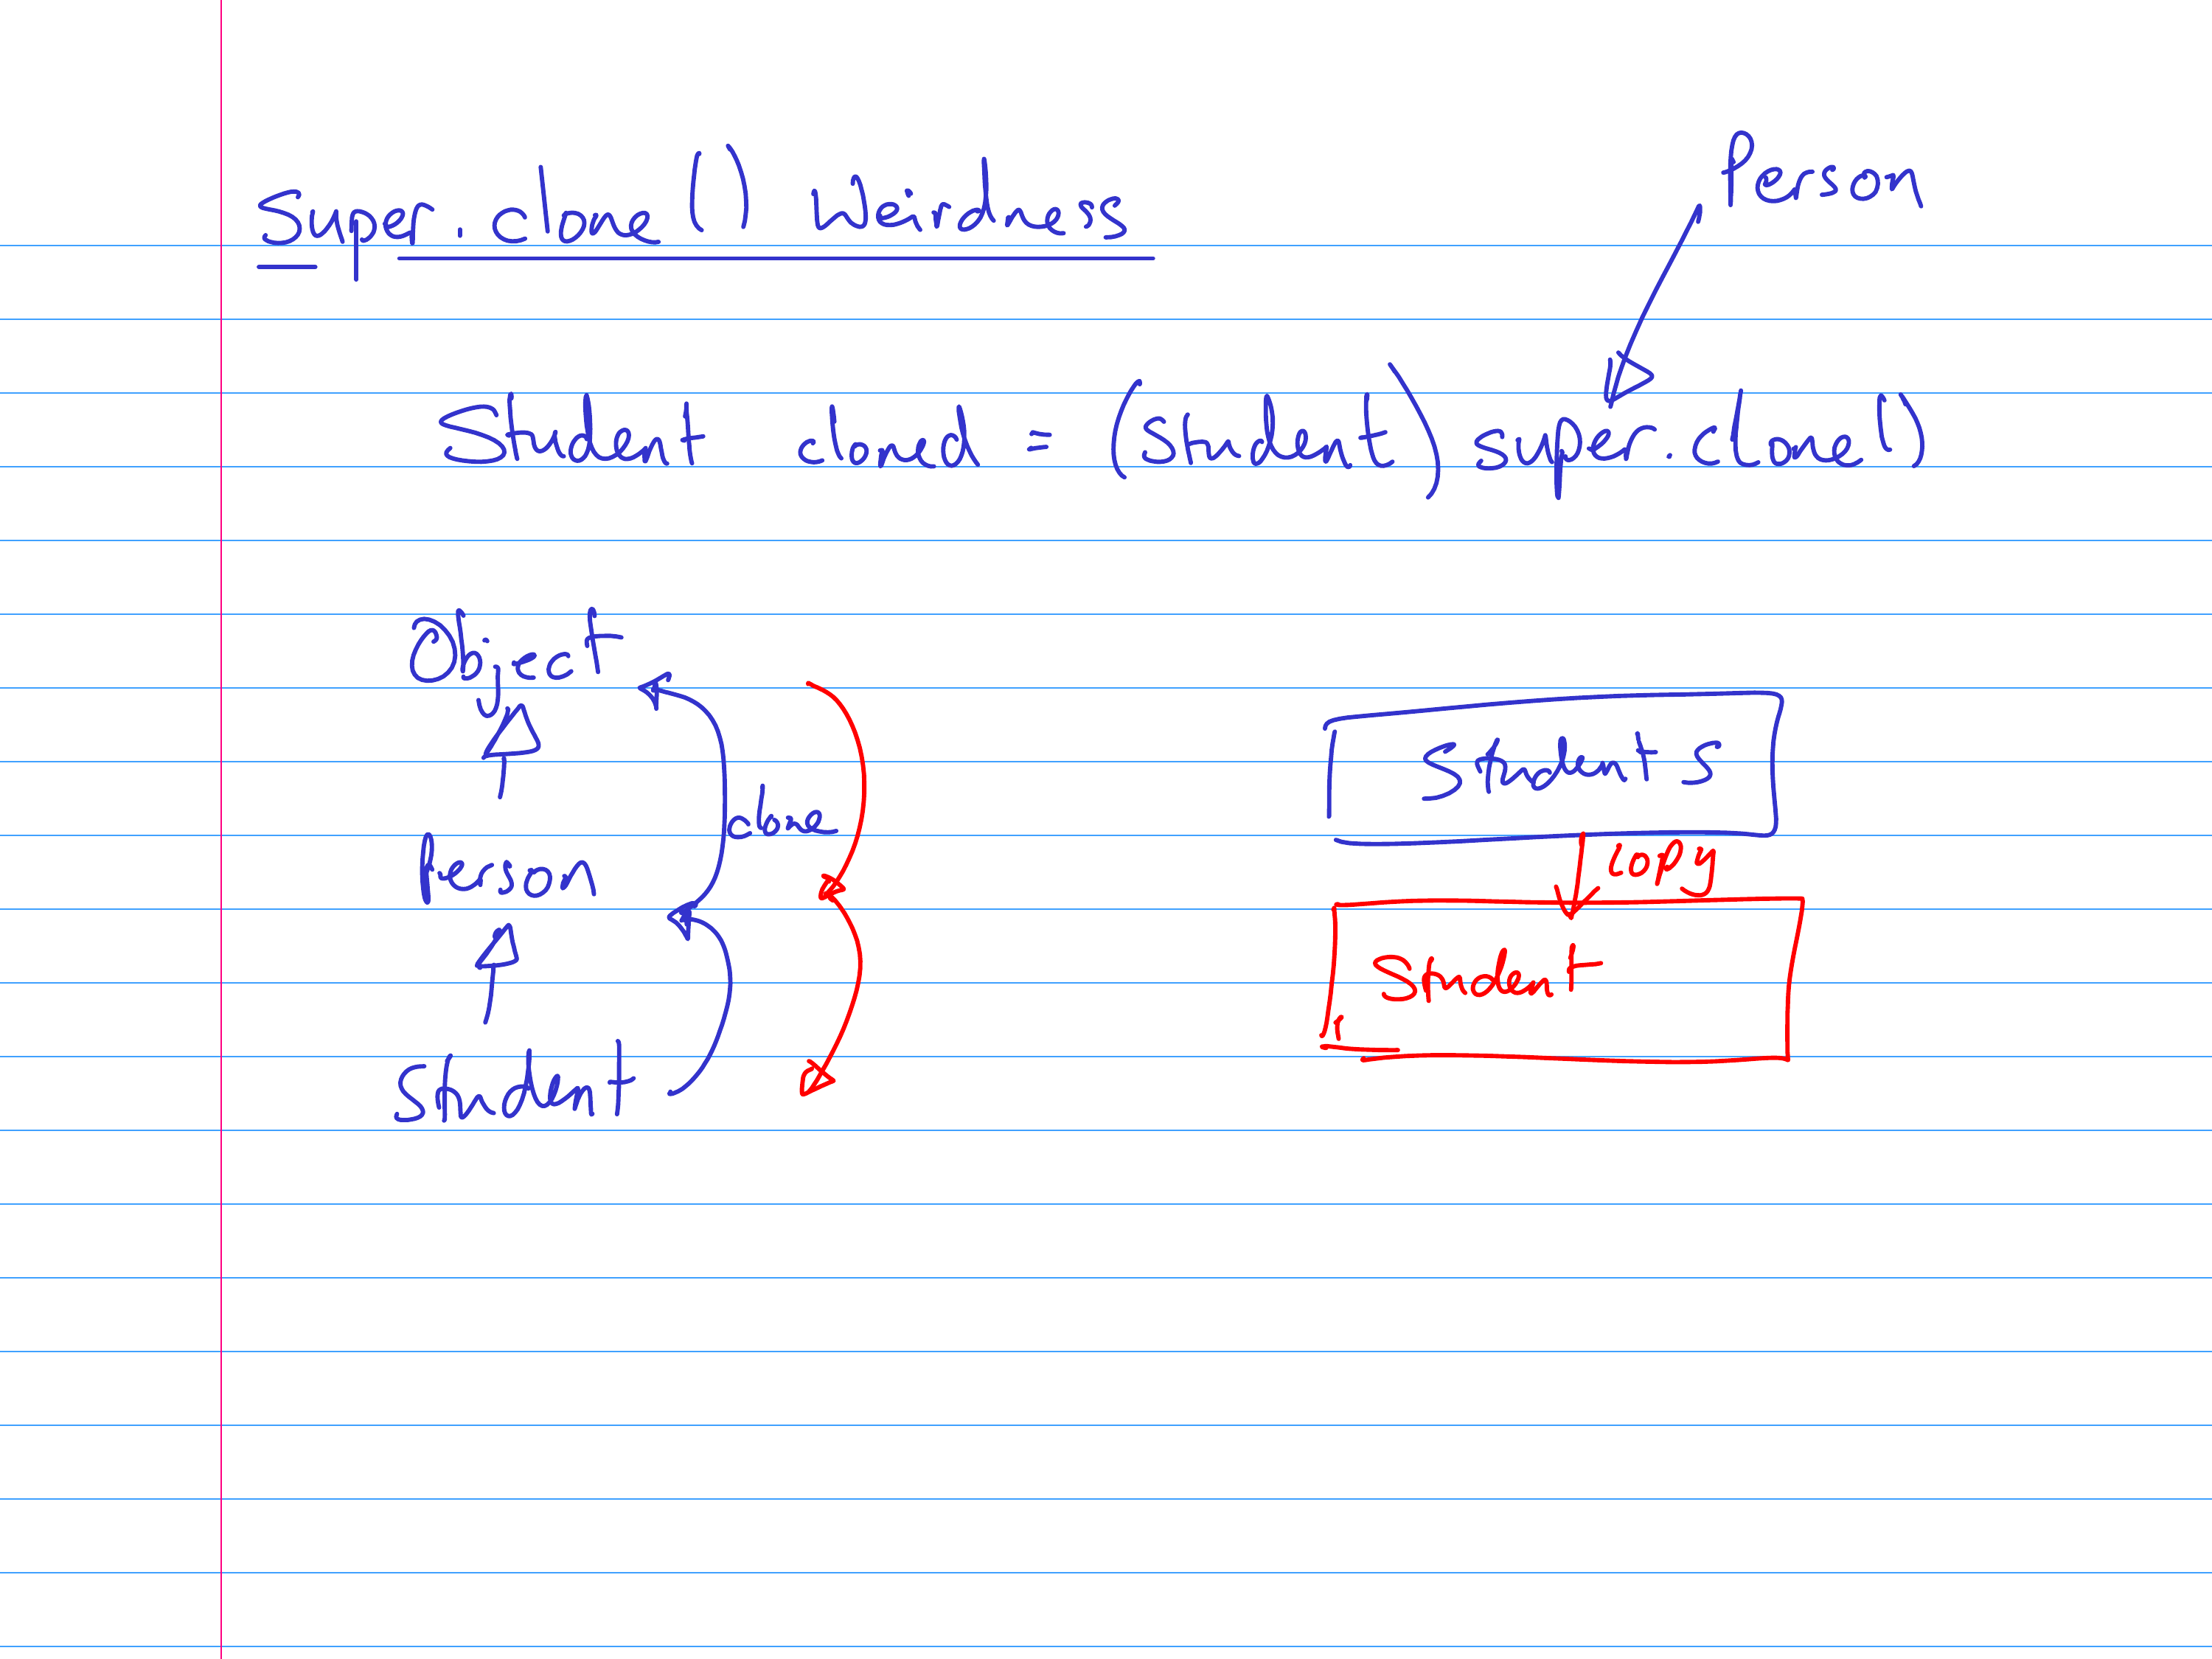 Super.clone() Weirdness
Person
Student cloned = (Student) super.clone()
Object
clone
Person
Student
Student s
copy
Student